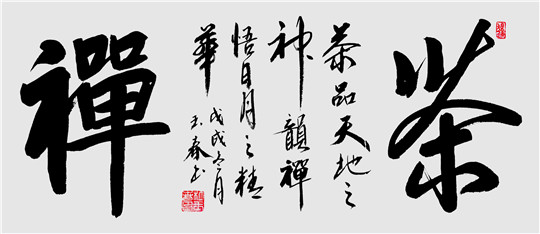 茶
茶品天地之
神韻禪
悟日月之精
華
戊戌月
玉春书
禪